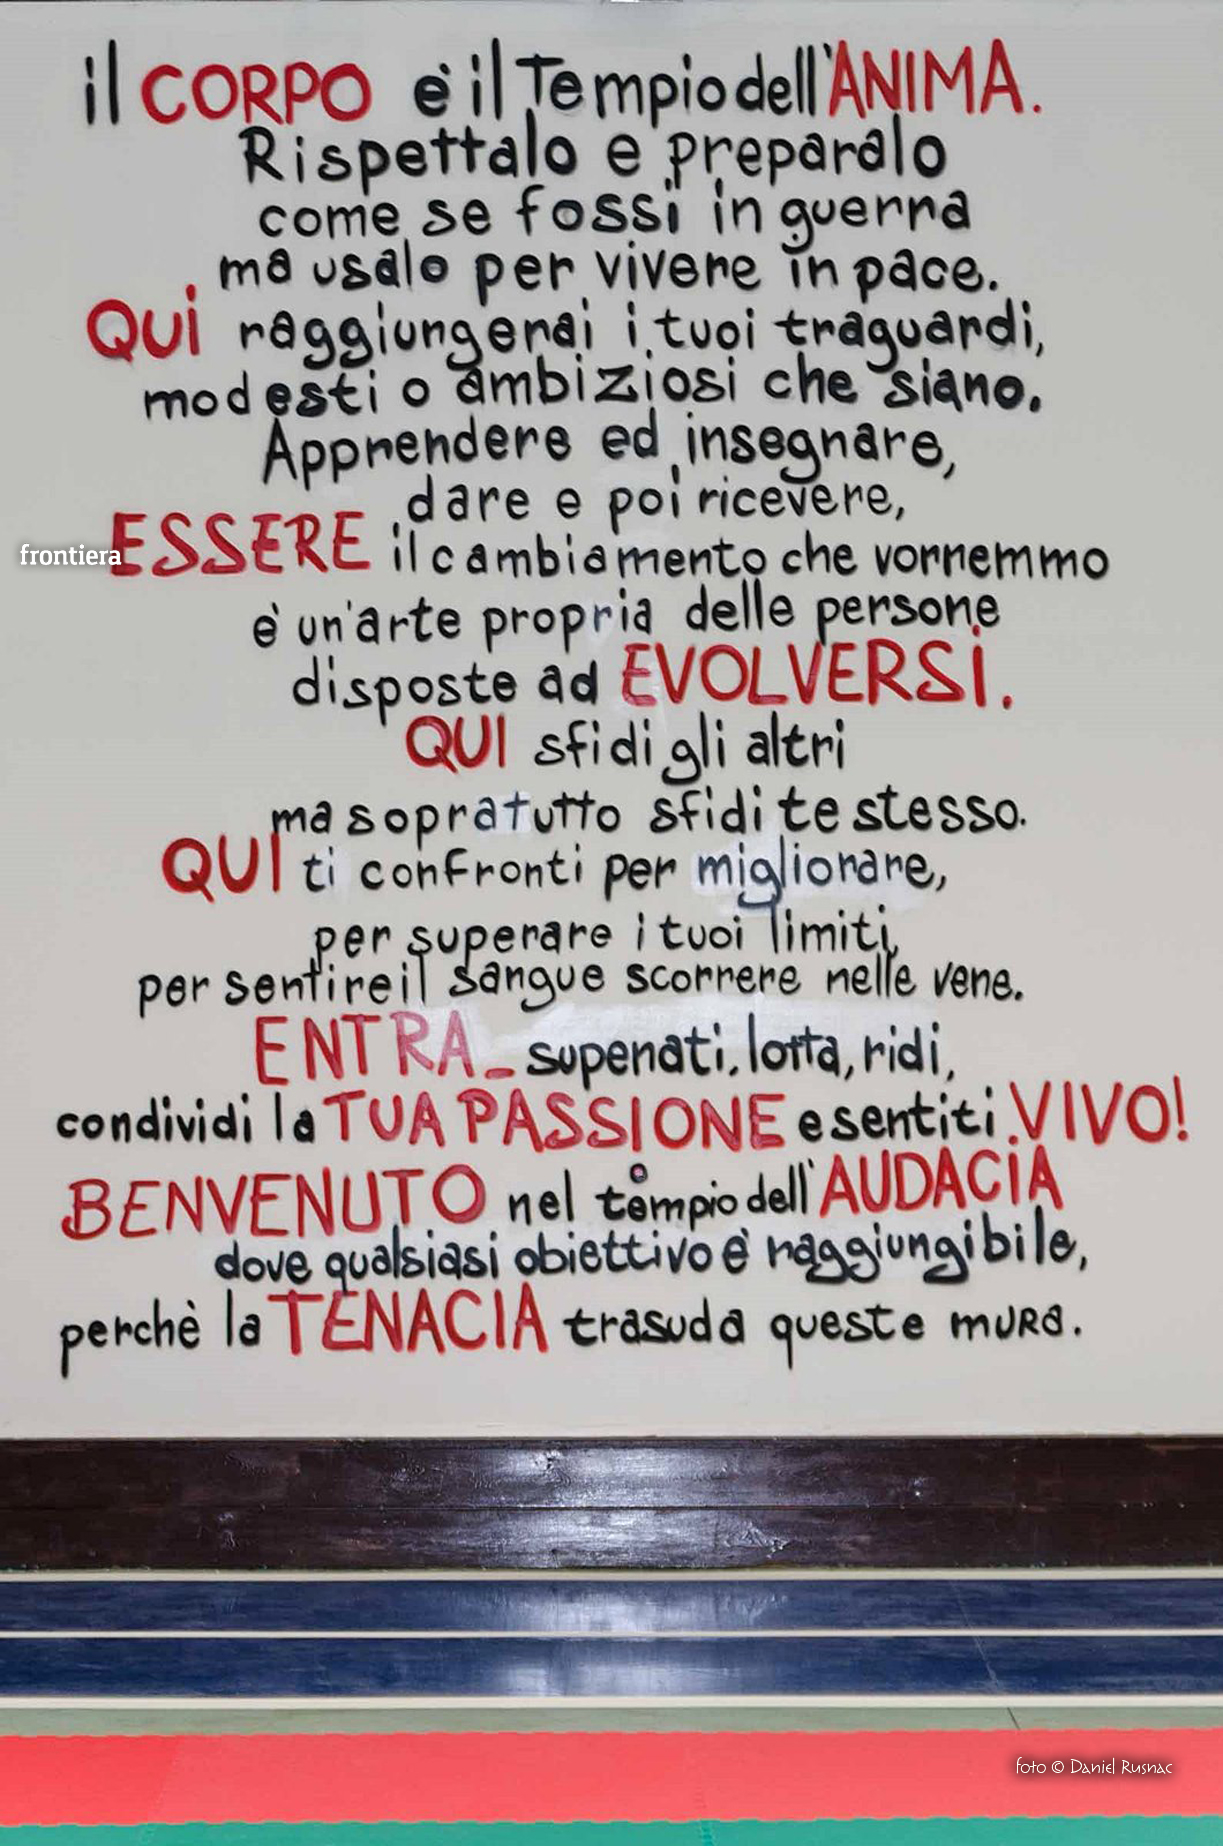 il CORPO è il Tempio dell'ANIMA.
Rispettalo e preparalo
come se fossi in guerra
ma usalo per vivere in pace.
QUi raggiungerai i tuoi traguardi,
modesti o ambiziosi che siano.
Apprendere ed insegnare,
dare e poi ricevere,
ESSERE il cambiamento che vorremmo
frontiera
è un'arte propria delle persone
disposte ad EVOLVERSi.
QUI sfidi gli altri
ma sopratutto sfidi te stesso.
QUI ti confronti per migliorare,
per superare i tuoi limiti,
per sentire il sangue scorrere nelle vene.
ENTRA_ superati, lotta, ridi,
condividi la TUA PASSIONE e sentiti VIVO!
BENVENUTO nel tempio dell'AUDACIA
dove qualsiasi obiettivo è raggiungibile,
perchè la TENACIA trasuda queste mura.
foto © Daniel Rusnac